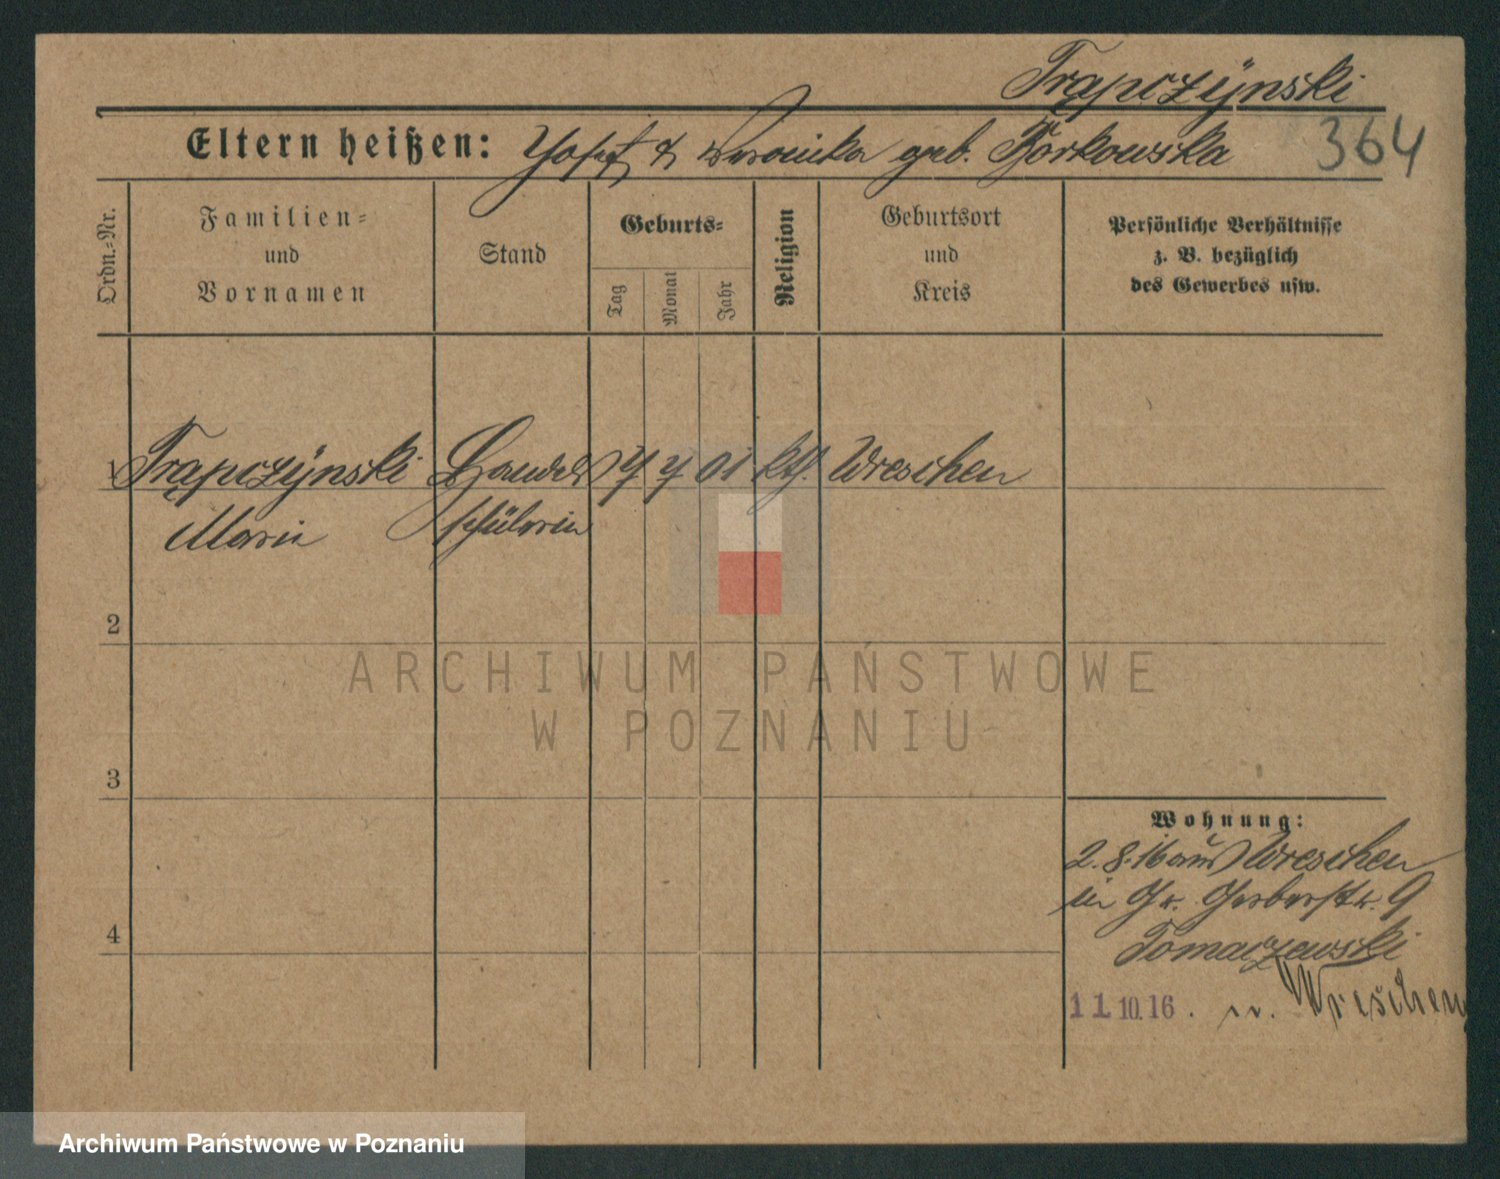 Trąpczÿnski
Eltern heißen: Josef & Veronika geb. Borkowska
364
Ordn.-Nr.
Familien-
und
Vornamen
Stand
Geburts-
Tag
Monat
Jahr
Religion
Geburtsort
und
Kreis
Persönliche Verhältnisse
z. B. bezüglich
des Gewerbes usw.
1 Trąpczÿnski Handels 4 7 01 kth. Wreschen
Marie schülerin
2
3
4
ARCHIWUM PAŃSTWOWE
W POZNANIU
Wohnung:
2. 8. 16 aus Wreschen
in Gr. Gerberstr. 9
Tomaczewski
11 10. 16. n. Wreschen
Archiwum Państwowe w Poznaniu